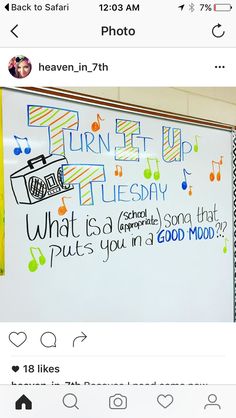 Back to Safari 12:03 AM 7%
Photo
heaven_in_7th
Turn It Up
Tuesday
What is a (school appropriate) song that
puts you in a GOOD MOOD?!?
18 likes
heaven_in_7th Because I need some new